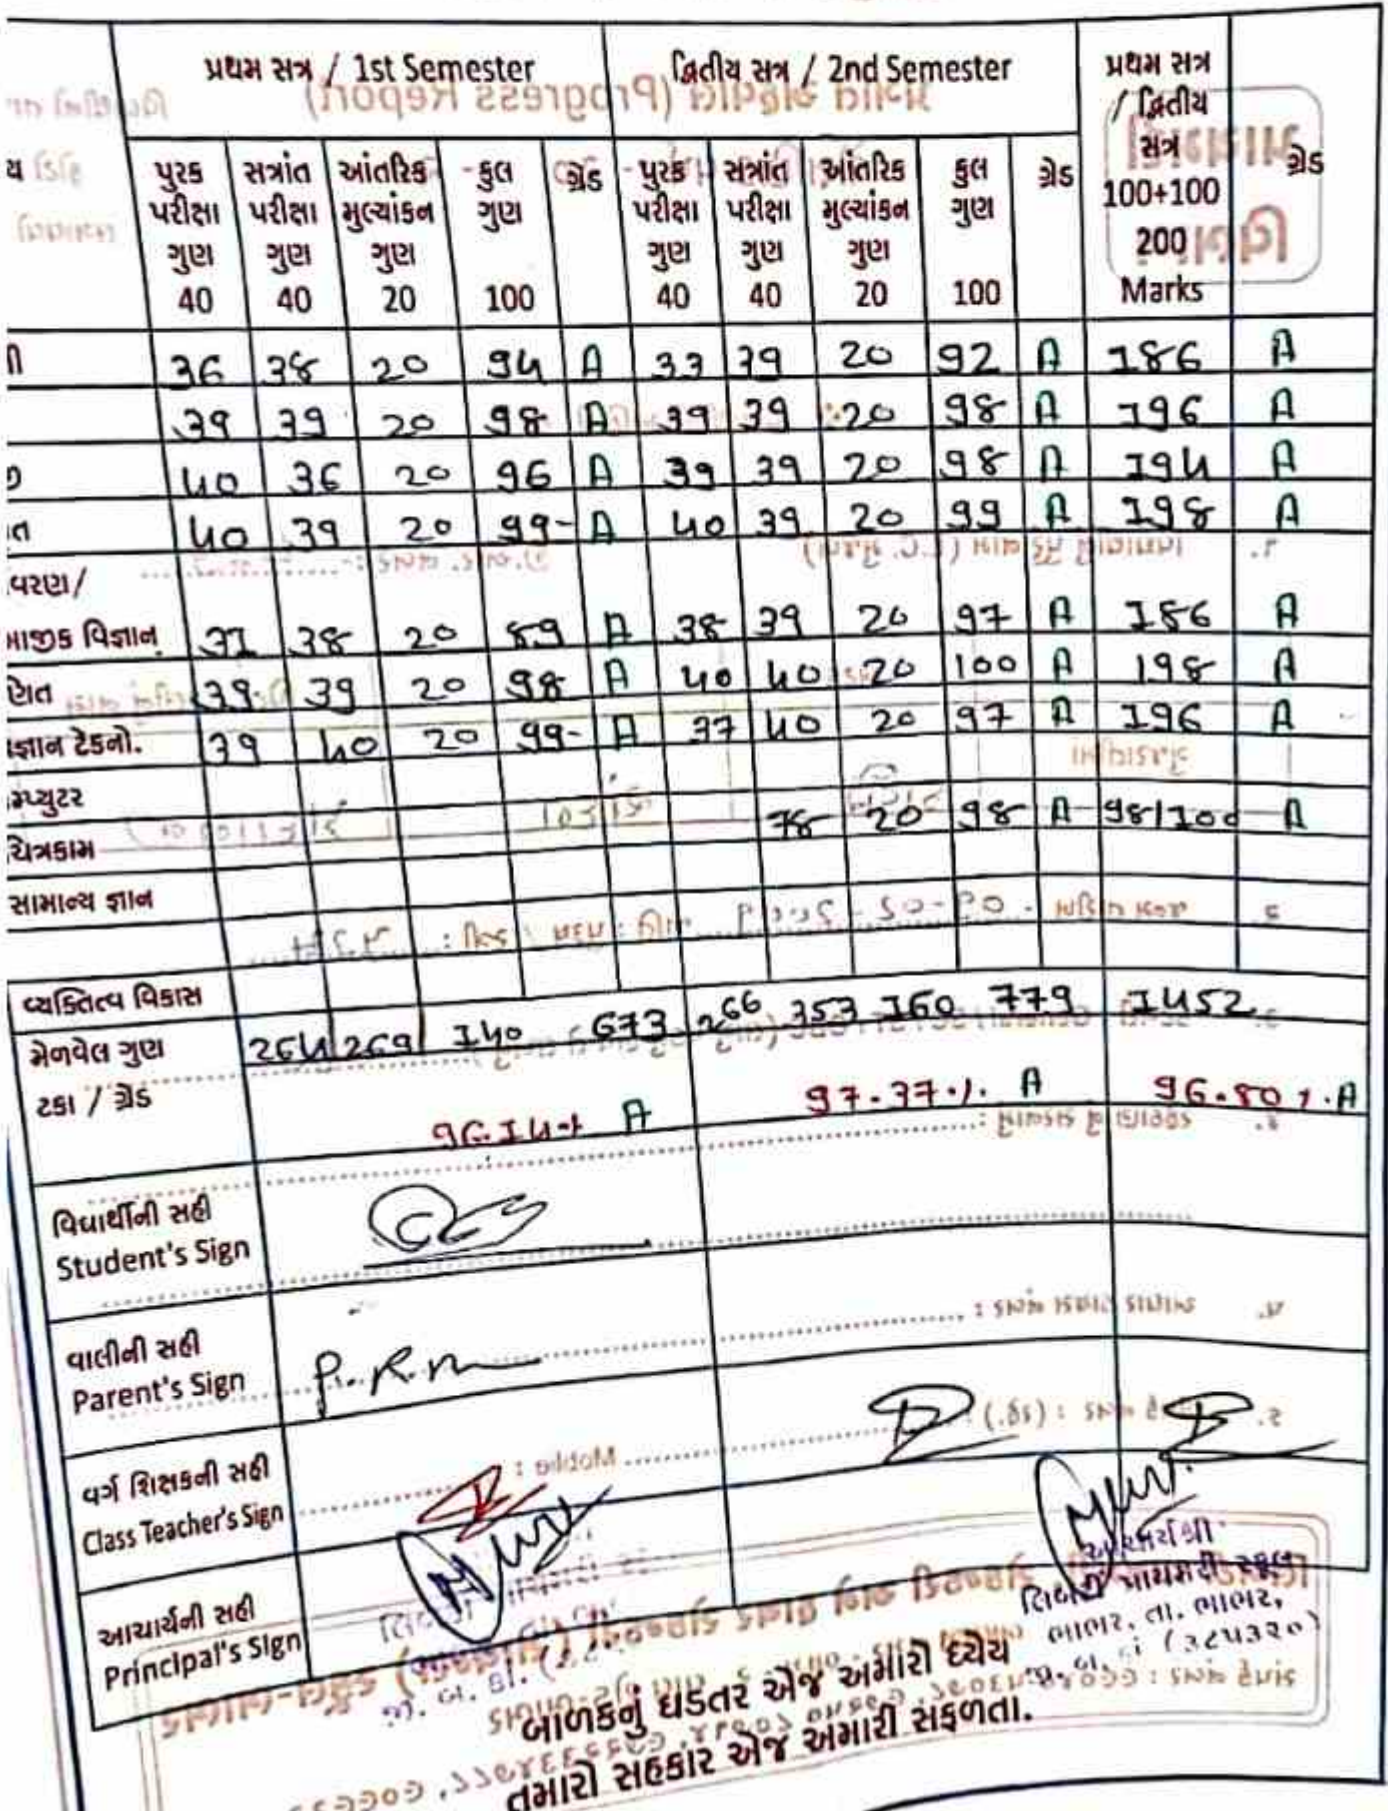 પ્રથમ સત્ર / 1st Semester દ્વિતીય સત્ર / 2nd Semester પ્રથમ સત્ર / દ્વિતીય સત્ર 100+100 200 Marks ગ્રેડ
પુરક પરીક્ષા ગુણ 40 સત્રાંત પરીક્ષા ગુણ 40 આંતરિક મુલ્યાંકન ગુણ 20 કુલ ગુણ 100 ગ્રેડ પુરક પરીક્ષા ગુણ 40 સત્રાંત પરીક્ષા ગુણ 40 આંતરિક મુલ્યાંકન ગુણ 20 કુલ ગુણ 100 ગ્રેડ
36 38 20 94 A 33 39 20 92 A 186 A
39 39 20 98 A 39 39 20 98 A 196 A
40 36 20 96 A 39 39 20 98 A 194 A
40 39 20 99 A 40 39 20 99 A 198 A
વરણ/
માજીક વિજ્ઞાન 31 38 20 89 A 38 39 20 97 A 186 A
ણિત 39 39 20 98 A 40 40 20 100 A 198 A
જ્ઞાન ટેકનો. 39 40 20 99 A 37 40 20 97 A 196 A
મ્પ્યુટર
ચિત્રકામ 78 20 98 A 98/100 A
સામાન્ય જ્ઞાન
વ્યક્તિત્વ વિકાસ
મેળવેલ ગુણ 264 269 140 673 266 353 160 779 1452
ટકા / ગ્રેડ 96.14% A 97.37% A 96.80% A
વિદ્યાર્થીની સહી
Student's Sign
વાલીની સહી
Parent's Sign P.R.m
વર્ગ શિક્ષકની સહી
Class Teacher's Sign
આચાર્યની સહી
Principal's Sign
આચાર્યશ્રી
ભાભર, તા. ભાભર,
જી. બ. કાં (૩૮૫૩૨૦)
બાળકનું ઘડતર એજ અમારો ધ્યેય
તમારો સહકાર એજ અમારી સફળતા.